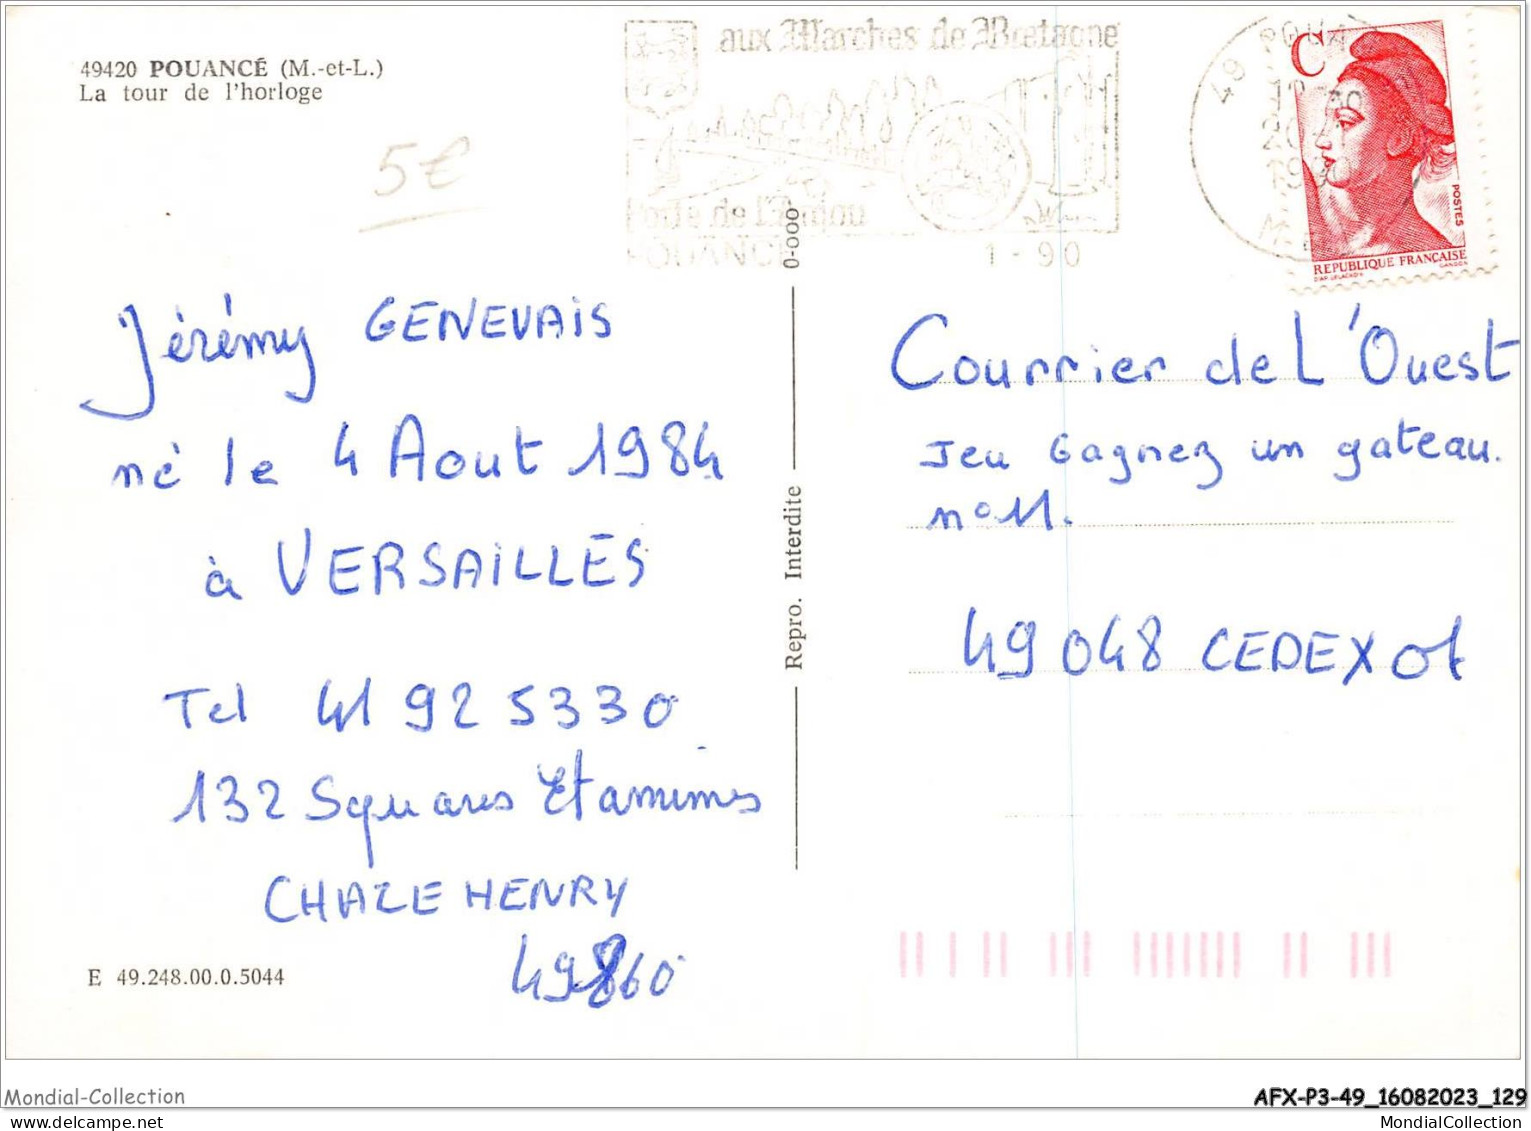 49420 POUANCÉ (M.-et-L.)
La tour de l'horloge
5€
aux Marches de Bretagne
Porte de l'Anjou
POUANCE
1-90
49 POUA
C
POSTES
REPUBLIQUE FRANÇAISE
Jérémy GENEVAIS
né le 4 Aout 1984
à VERSAILLES
Tel 41 92 53 30
132 Squares Etamines
CHAZE HENRY
49860
E 49.248.00.0.5044
Repro. Interdite
0-000
Courrier de L'Ouest
Jeu Gagnez un gateau.
n°11.
49 048 CEDEX 01
Mondial-Collection
AFX-P3-49_16082023_129
www.mondialcollection.com
MondialCollection